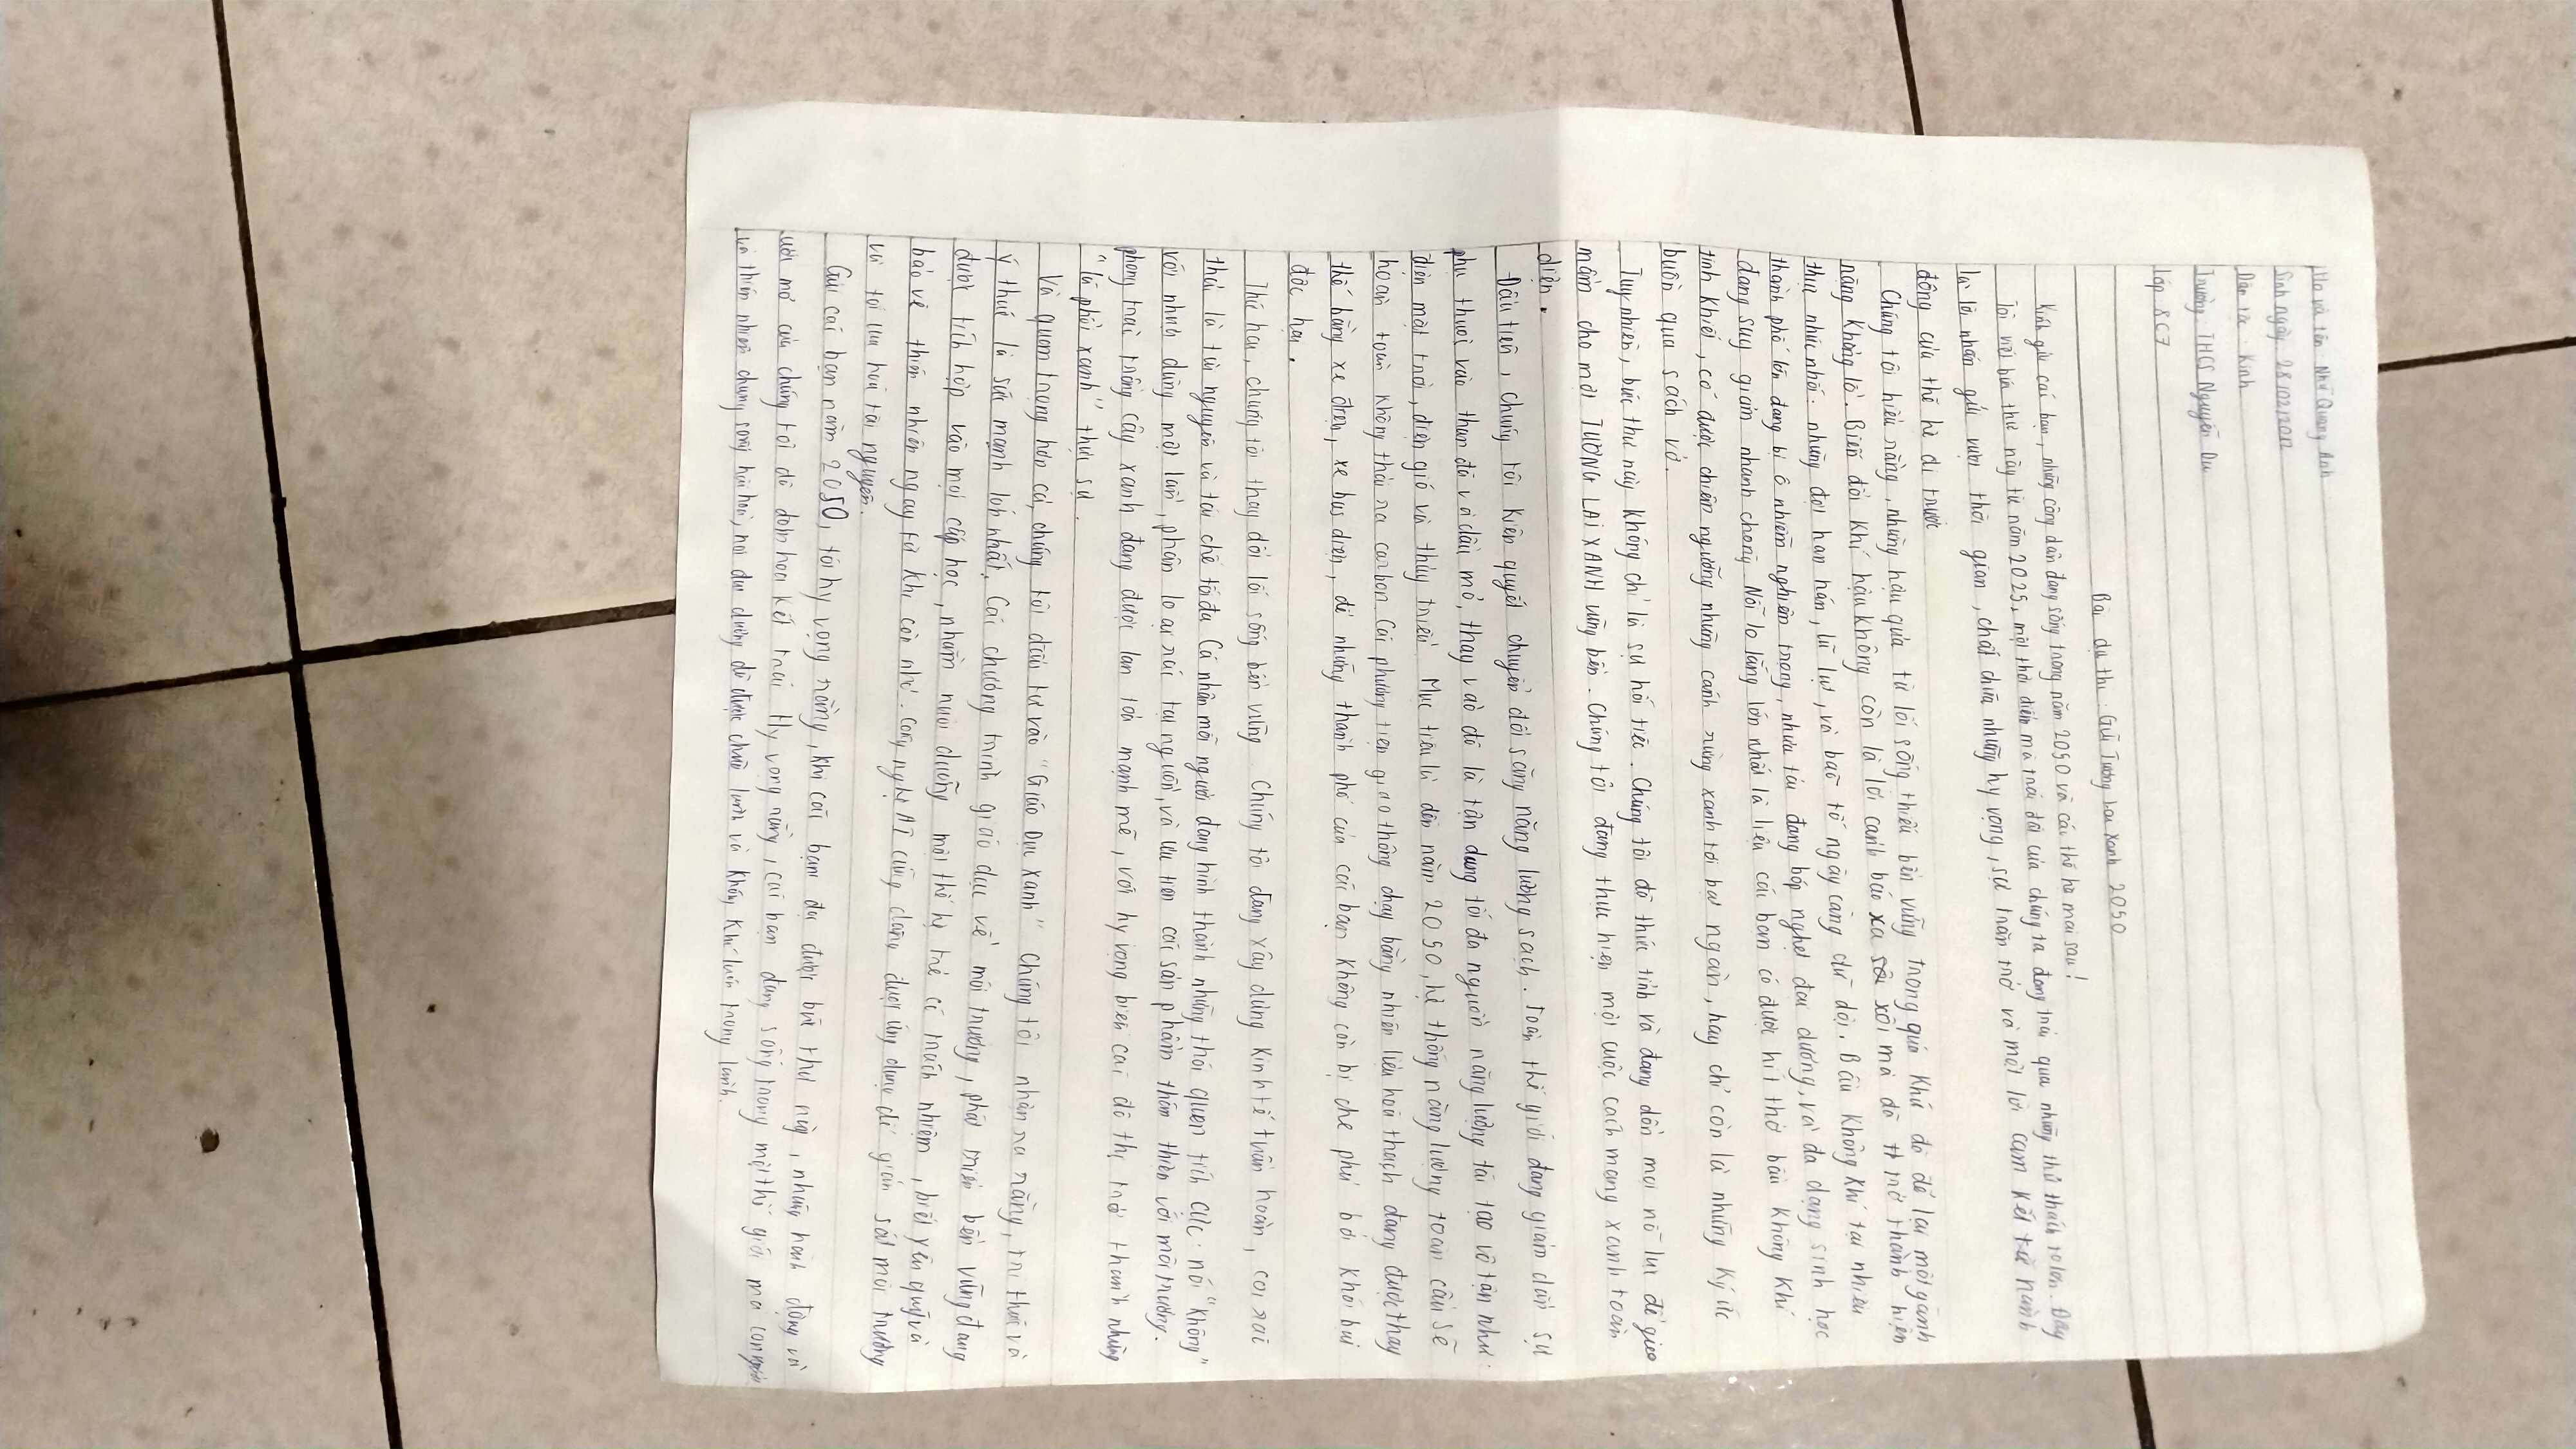 Họ và tên Như Quang Anh
Sinh ngày 28/02/2012
Dân tộc: Kinh
Trường: THCS Nguyễn Du
Lớp 8C7
Bài dự thi: Gửi Tương lai Xanh 2050
Kính gửi các bạn, những công dân đang sống trong năm 2050 và các thế hệ mai sau!
Tôi viết bức thư này từ năm 2025, một thời điểm mà trái đất của chúng ta đang trải qua những thử thách to lớn. Đây
là lời nhắn gửi vượt thời gian, chất chứa những hy vọng, sự trăn trở và một lời cam kết về hành
động của thế hệ đi trước
Chúng tôi hiểu rằng, những hậu quả từ lối sống thiếu bền vững trong quá khứ đã để lại một gánh
nặng khổng lồ. Biến đổi khí hậu không còn là lời cảnh báo xa xôi mà đã trở thành hiện
thực nhức nhối: những đợt hạn hán, lũ lụt, và bão tố ngày càng dữ dội. Bầu không khí tại nhiều
thành phố lớn đang bị ô nhiễm nghiêm trọng, nhựa tái đang bóp nghẹt đại dương, và đa dạng sinh học
đang suy giảm nhanh chóng. Nỗi lo lắng lớn nhất là liệu các bạn có được hít thở bầu không khí
tinh khiết, có được chiêm ngưỡng những cánh rừng xanh tới bạt ngàn, hay chỉ còn là những ký ức
buồn qua sách vở.
Tuy nhiên, bức thư này không chỉ là sự hối tiếc. Chúng tôi đã thức tỉnh và đang dồn mọi nỗ lực để gieo
mầm cho một TƯƠNG LAI XANH vững bền. Chúng tôi đang thực hiện một cuộc cách mạng xanh toàn
diện.
Đầu tiên, chúng tôi kiên quyết chuyển đổi sang năng lượng sạch. Toàn thế giới đang giảm dần sự
phụ thuộc vào than đá và dầu mỏ, thay vào đó là tận dụng tối đa nguồn năng lượng tái tạo vô tận như:
điện mặt trời, điện gió và thủy triều. Mục tiêu là đến năm 2050, hệ thống năng lượng toàn cầu sẽ
hoàn toàn không thải ra carbon. Các phương tiện giao thông chạy bằng nhiên liệu hoá thạch đang được thay
thế bằng xe điện, xe bus điện, để những thành phố của các bạn không còn bị che phủ bởi khói bụi
độc hại.
Thứ hai, chúng tôi thay đổi lối sống bền vững. Chúng tôi đang xây dựng kinh tế tuần hoàn, coi rác
thải là tài nguyên và tái chế tối đa. Cá nhân mỗi người đang hình thành những thói quen tích cực: nói "Không"
với nhựa dùng một lần, phân loại rác tại nguồn, và ưu tiên các sản phẩm thân thiện với môi trường.
phong trào trồng cây xanh đang được lan toả mạnh mẽ, với hy vọng biến các đô thị trở thành những
"lá phổi xanh" thực sự.
Và quan trọng hơn cả, chúng tôi đầu tư vào "Giáo Dục Xanh" Chúng tôi nhận ra rằng, tri thức và
ý thức là sức mạnh lớn nhất. Các chương trình giáo dục về môi trường, phát triển bền vững đang
được tích hợp vào mọi cấp học, nhằm nuôi dưỡng một thế hệ trẻ có trách nhiệm, biết yêu quý và
bảo vệ thiên nhiên ngay từ khi còn nhỏ. Công nghệ AI cũng đang được ứng dụng để giám sát môi trường
và tối ưu hoá tài nguyên.
Gửi các bạn năm 2050, tôi hy vọng rằng, khi các bạn đọc được bức thư này, những hành động và
ước mơ của chúng tôi đã đơm hoa kết trái. Hy vọng rằng, các bạn đang sống trong một thế giới mà con người
và thiên nhiên chung sống hài hoà, nơi đại dương đã được chữa lành và không khí luôn trong lành.